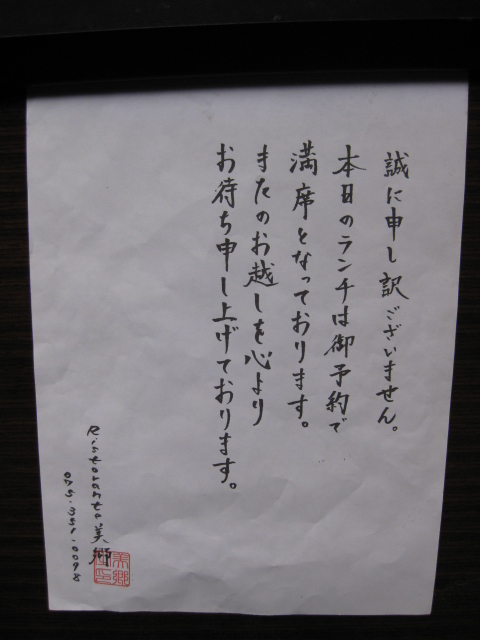 誠に申し訳ございません。
本日のランチは御予約で
満席となっております。
またのお越しを心より
お待ち申し上げております。
Ristorante 美郷
075-351-0098
美郷